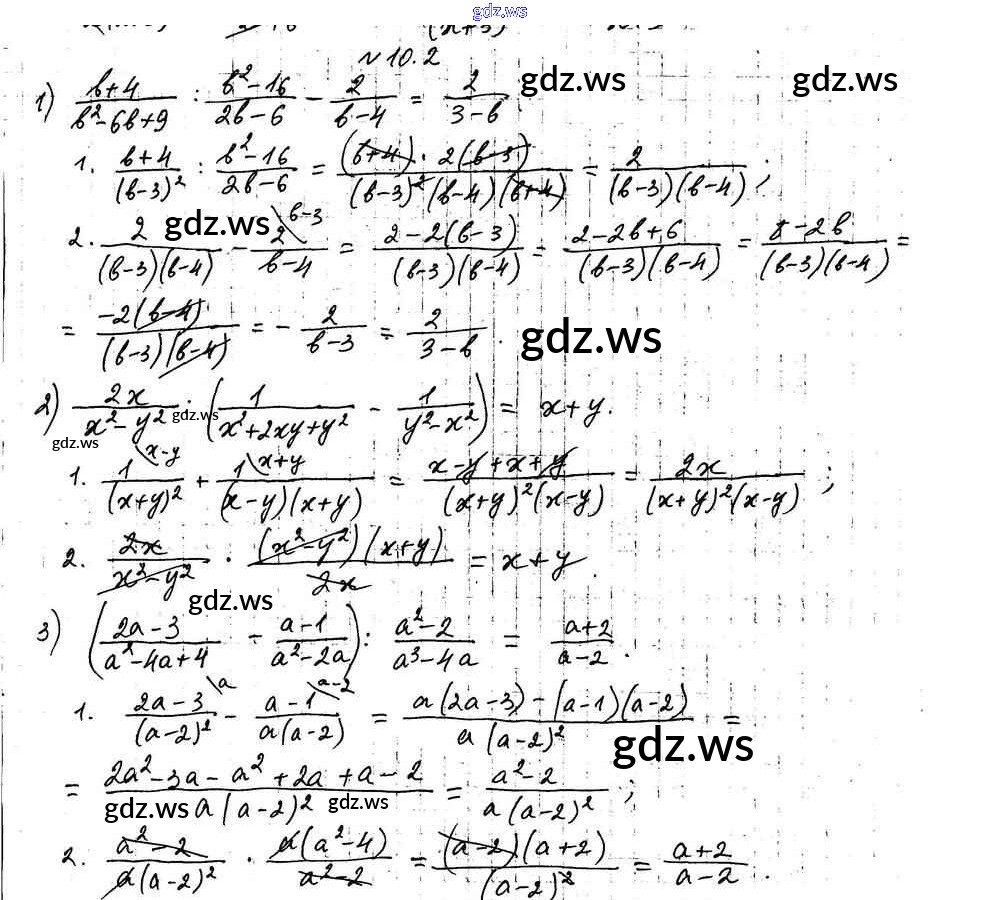 gdz.ws
N 10.2
1) (b+4)/(b²-6b+9) : (b²-16)/(2b-6) - 2/(b-4) = 2/(3-b). gdz.ws gdz.ws
1. (b+4)/(b-3)² : (b²-16)/(2b-6) = ((b+4)·2(b-3))/((b-3)²(b-4)(b+4)) = 2/((b-3)(b-4));
gdz.ws
2. 2/((b-3)(b-4)) - 2\b-3/(b-4) = (2-2(b-3))/((b-3)(b-4)) = (2-2b+6)/((b-3)(b-4)) = (8-2b)/((b-3)(b-4)) =
= (-2(b-4))/((b-3)(b-4)) = - 2/(b-3) = 2/(3-b). gdz.ws
2) 2x/(x²-y²) : (1/(x²+2xy+y²) - 1/(y²-x²)) = x+y.
gdz.ws gdz.ws
1. 1\x-y/(x+y)² + 1\x+y/((x-y)(x+y)) = (x-y+x+y)/((x+y)²(x-y)) = 2x/((x+y)²(x-y));
2. 2x/(x²-y²) · ((x²-y²)(x+y))/2x = x+y.
gdz.ws
3) ((2a-3)/(a²-4a+4) - (a-1)/(a²-2a)) : (a²-2)/(a³-4a) = (a+2)/(a-2).
1. (2a-3)\a/(a-2)² - (a-1)\a-2/(a(a-2)) = (a(2a-3)-(a-1)(a-2))/(a(a-2)²) =
gdz.ws
= (2a²-3a-a²+2a+a-2)/(a(a-2)²) = (a²-2)/(a(a-2)²);
gdz.ws gdz.ws
2. (a²-2)/(a(a-2)²) · (a(a²-4))/(a²-2) = ((a-2)(a+2))/(a-2)² = (a+2)/(a-2).